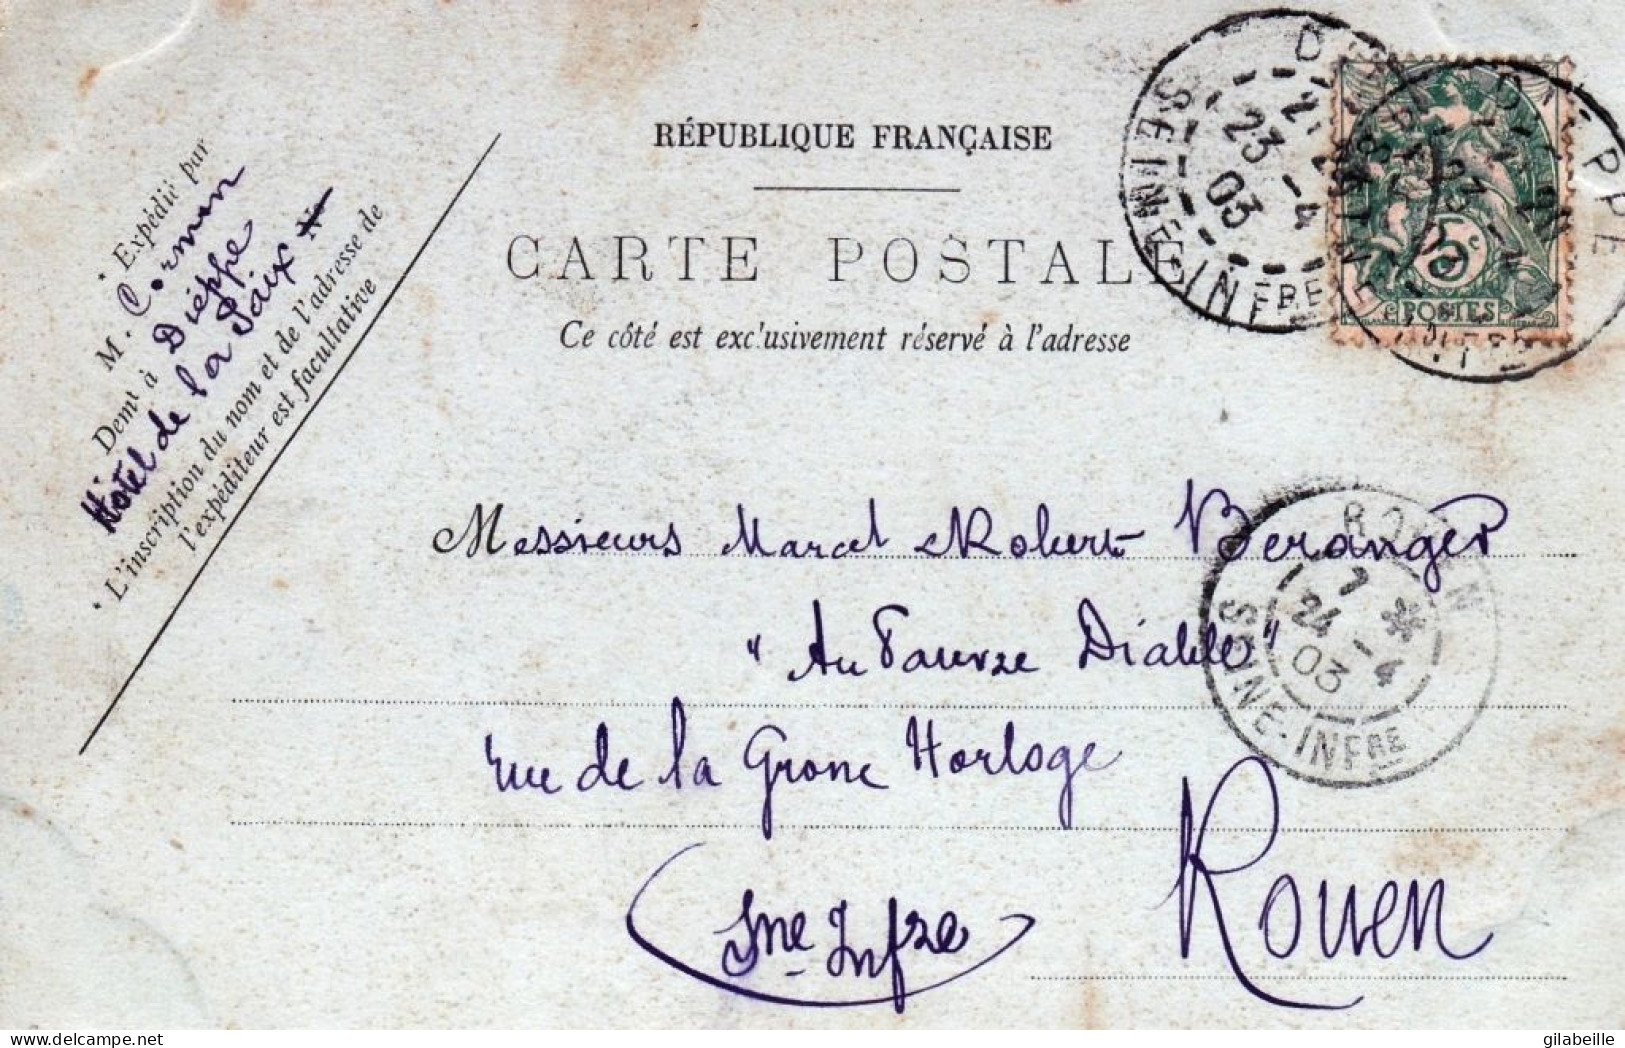 RÉPUBLIQUE FRANÇAISE
CARTE POSTALE
Ce côté est exclusivement réservé à l'adresse
Expédié par
M. Cormon
Demt à Dieppe
Hôtel de la Paix
L'inscription du nom et de l'adresse de
l'expéditeur est facultative
DIEPPE
23 - 4
03
SEINE-INFRE
5c
POSTES
Messieurs Marcel & Robert Beranger
"Au Pauvre Diable"
rue de la Grosse Horloge
Rouen
(Sne Infre)
ROUEN
7 *
24 - 4
03
SEINE-INFRE
gilabeille